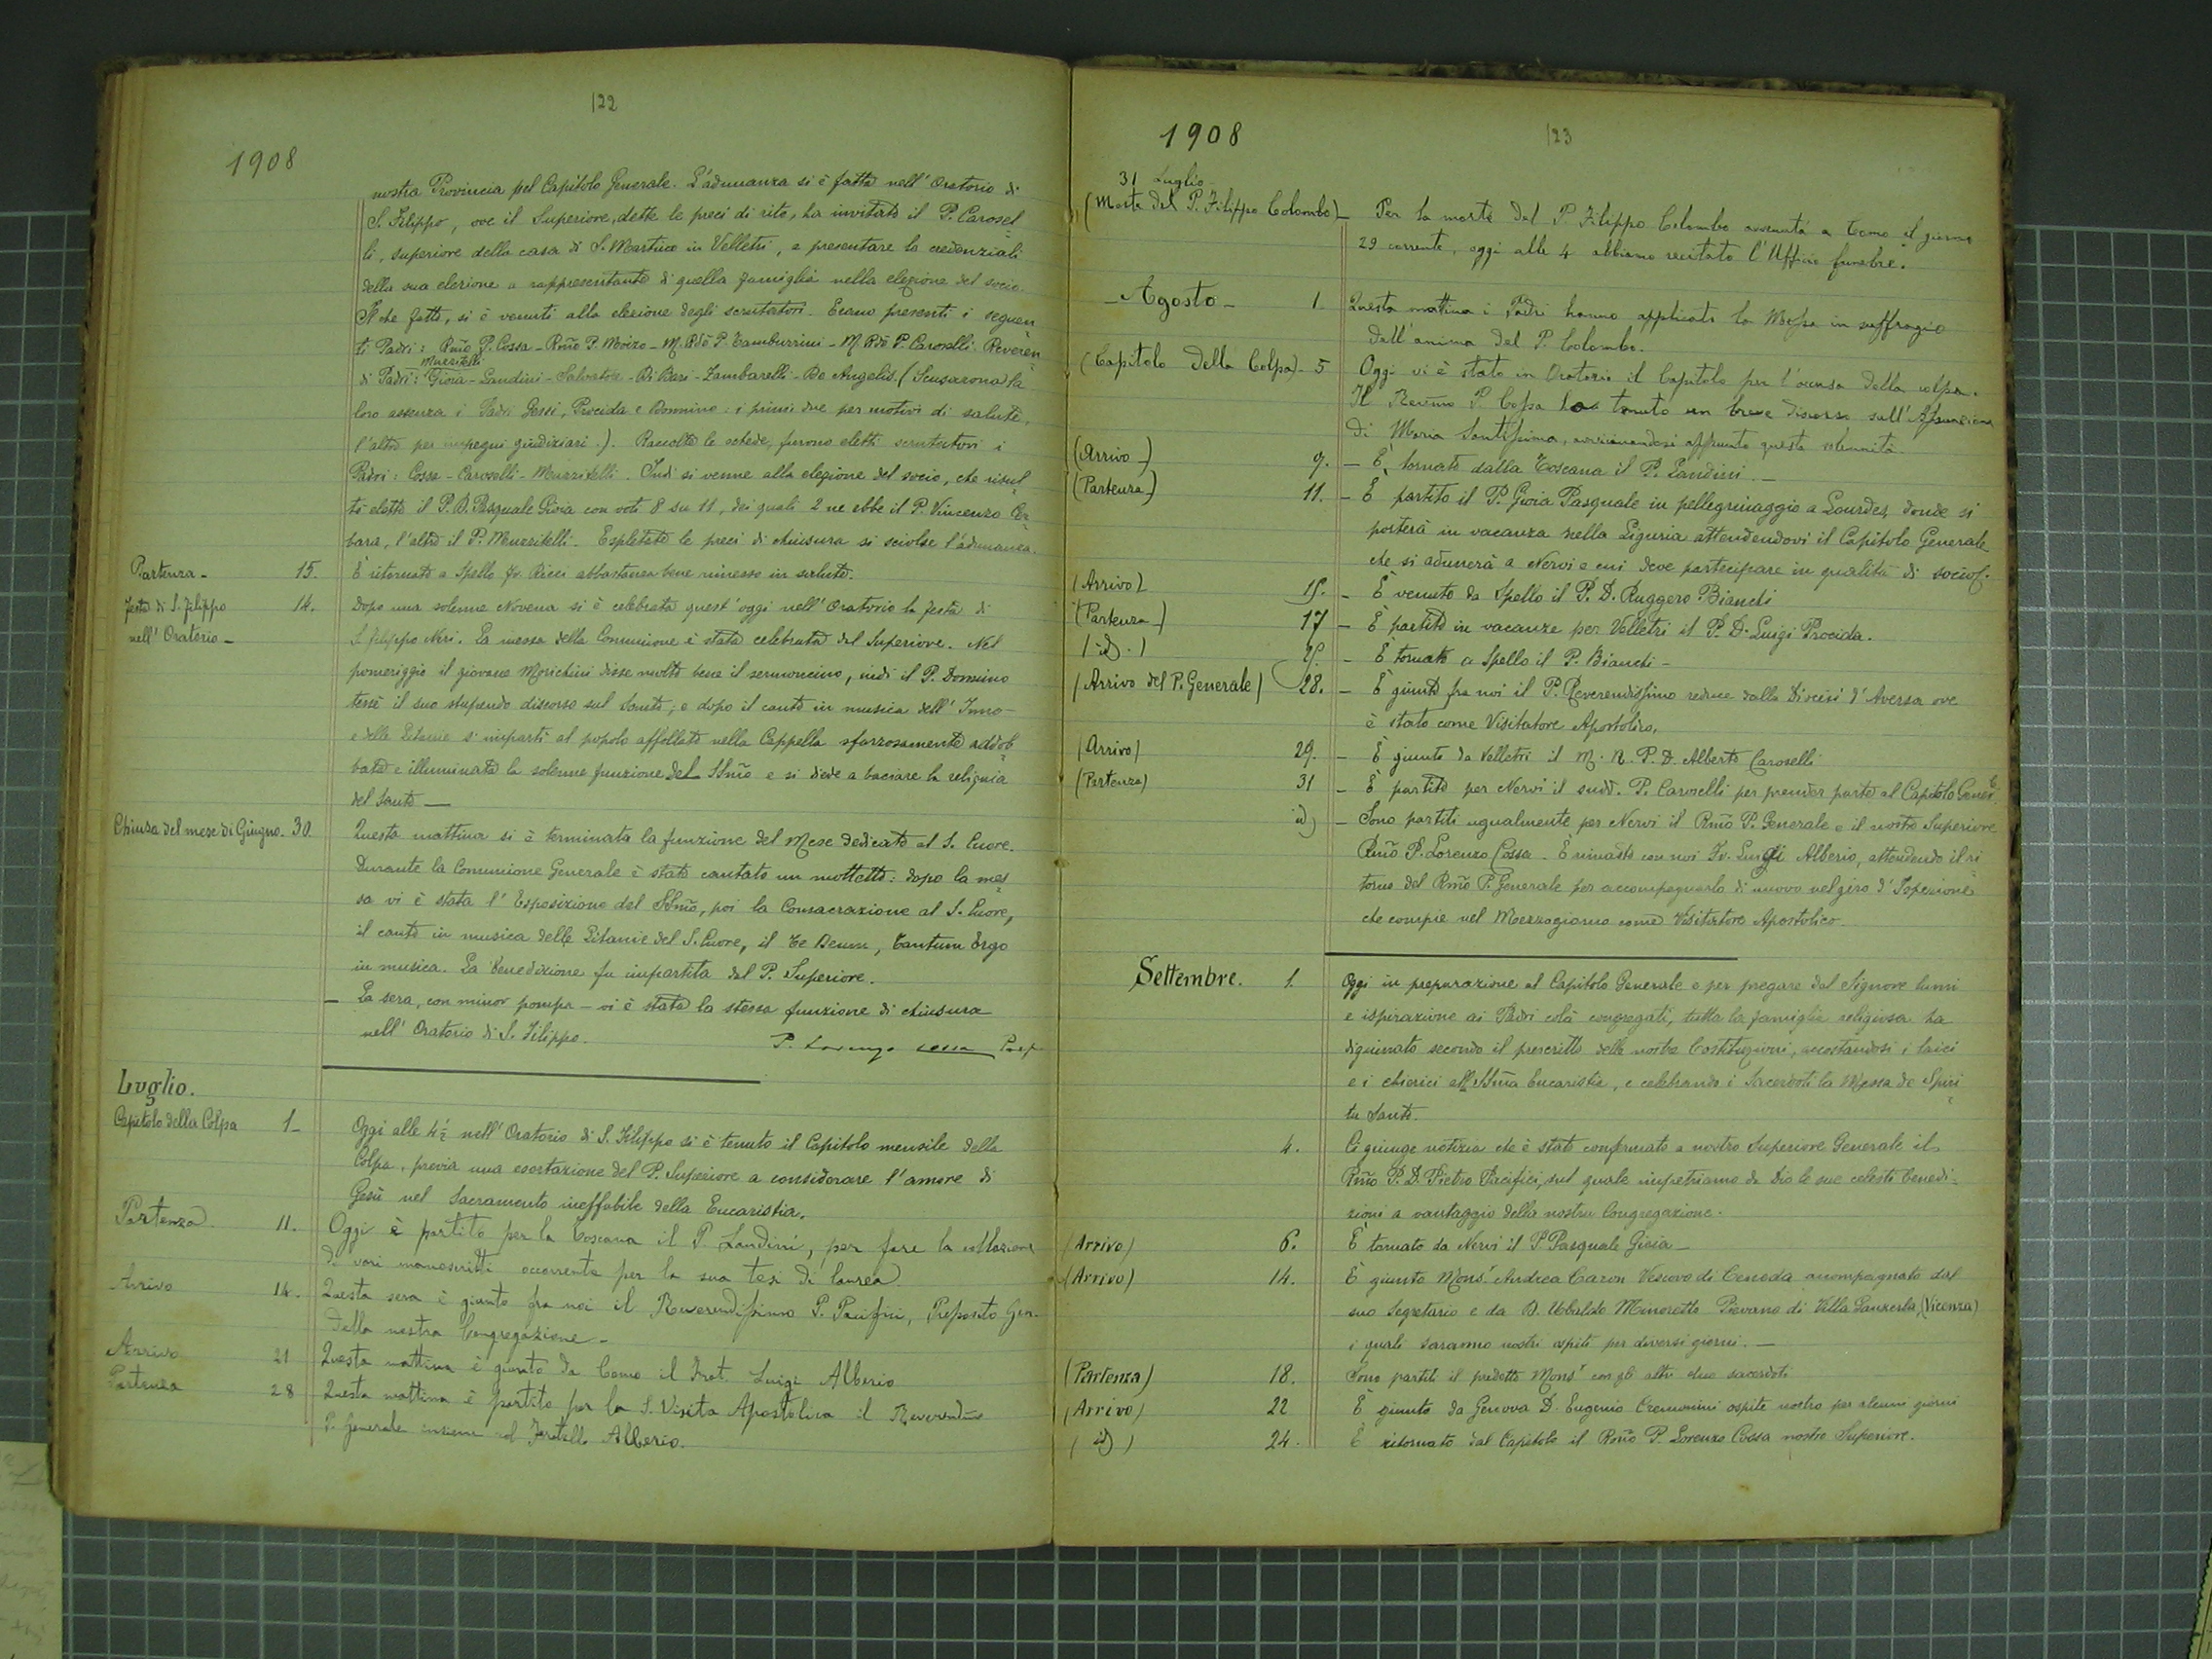 122
1908
nostra Provincia pel Capitolo Generale. L'adunanza si è fatta nell'Oratorio di
S. Filippo, ove il Superiore, dette le preci di rito, ha invitato il P. Carosel=
li, superiore della casa di S. Martino in Velletri, a presentare le credenziali
della sua elezione a rappresentante di quella famiglia nella elezione del socio.
Il che fatto, si è venuti alla elezione degli scrutatori. Erano presenti i seguen=
ti Padri: Rmo P. Cossa - Rmo P. Moizo - M. Rdo P. Tamburrini - M. Rdo P. Caroselli. Reveren=
Muzzitelli
di Padri: Gioia - Landini - Salvatore - Di Bari - Zambarelli - De Angelis. (Scusarono la
loro assenza i Padri Gessi, Procida e Dominino: i primi due per motivi di salute,
l'altro per impegni giudiziari.). Raccolte le schede, furono eletti scrutatori i
Padri: Cossa - Caroselli - Muzzitelli. Indi si venne alla elezione del socio, che risul=
tò eletto il P. D. Pasquale Gioia con voti 8 su 11, dei quali 2 ne ebbe il P. Vincenzo Cer=
bara, l'altro il P. Muzzitelli. Espletate le preci di chiusura si sciolse l'adunanza.
Partenza - 15. È ritornato a Spello Fr. Ricci abbastanza bene rimesso in salute.
Festa di S. Filippo 14. Dopo una solenne Novena si è celebrata quest'oggi nell'Oratorio la festa di
nell'Oratorio - S. Filippo Neri. La messa della Comunione è stata celebrata dal Superiore. Nel
pomeriggio il giovane Morichini disse molto bene il sermoncino, indi il P. Dominino
tessè il suo stupendo discorso sul Santo; e dopo il canto in musica dell'Inno
e delle Litanie s'impartì al popolo affollato nella Cappella sfarzosamente addob=
bata e illuminata la solenne funzione del SSmo e si diede a baciare la reliquia
del Santo —
Chiusa del mese di Giugno. 30. Questa mattina si è terminata la funzione del Mese dedicato al S. Cuore.
Durante la Comunione Generale è stato cantato un mottetto: dopo la mes=
sa vi è stata l'Esposizione del SSmo, poi la Consacrazione al S. Cuore,
il canto in musica delle Litanie del S. Cuore, il Te Deum, Tantum Ergo
in musica. La Benedizione fu impartita dal P. Superiore.
— La sera, con minor pompa - vi è stata la stessa funzione di chiusura
nell'Oratorio di S. Filippo.
P. Lorenzo Cossa Prep.
Luglio.
Capitolo della Colpa 1 - Oggi alle 4½ nell'Oratorio di S. Filippo si è tenuto il Capitolo mensile della
Colpa, previa una esortazione del P. Superiore a considerare l'amore di
Gesù nel Sacramento ineffabile della Eucaristia.
Partenza. 11. Oggi è partito per la Toscana il P. Landini, per fare la collazione
di vari manoscritti occorrente per la sua tesi di laurea.
Arrivo 14. Questa sera è giunto fra noi il Reverendissimo P. Pacifici, Preposito Gen.
della nostra Congregazione -
Arrivo 21 Questa mattina è giunto da Como il Frat. Luigi Alberio
Partenza 28 Questa mattina è partito per la S. Visita Apostolica il Reverendmo
P. Generale insieme col Fratello Alberio.
123
1908
31 Luglio
(Morte del P. Filippo Colombo) - Per la morte del P. Filippo Colombo avvenuta a Como il giorno
29 corrente, oggi alle 4 abbiamo recitato l'Ufficio funebre.
- Agosto - 1. Questa mattina i Padri hanno applicato la Messa in suffragio
dell'anima del P. Colombo.
(Capitolo della Colpa) - 5 Oggi vi è stato in Oratorio il Capitolo per l'accusa della colpa.
Il Revmo P. Cossa ha tenuto un breve discorso sull'Assunzione
di Maria Santissima, avvicinandosi appunto questa solennità.
(Arrivo -) 9. - È tornato dalla Toscana il P. Landini. -
(Partenza -) 11. - È partito il P. Gioia Pasquale in pellegrinaggio a Lourdes, donde si
porterà in vacanza nella Liguria attendendovi il Capitolo Generale
che si adunerà a Nervi e cui deve partecipare in qualità di socio.
(Arrivo) 15. - È venuto da Spello il P. D. Ruggero Bianchi
(Partenza -) 17 - È partito in vacanze per Velletri il P. D. Luigi Procida.
(id.) 25. - È tornato a Spello il P. Bianchi -
(Arrivo del P. Generale) 28. - È giunto fra noi il P. Reverendissimo reduce dalla Diocesi d'Aversa ove
è stato come Visitatore Apostolico.
(Arrivo) 29. - È giunto da Velletri il M. R. P. D. Alberto Caroselli
(Partenza) 31 - È partito per Nervi il sudd. P. Caroselli per prender parte al Capitolo Genele
id) - Sono partiti ugualmente per Nervi il Rmo P. Generale e il nostro Superiore
Rmo P. Lorenzo Cossa. È rimasto con noi Fr. Luigi Alberio, attendendo il ri=
torno del Rmo P. Generale per accompagnarlo di nuovo nel giro d'Ispezione
che compie nel Mezzogiorno come Visitatore Apostolico.
Settembre. 1. Oggi in preparazione al Capitolo Generale e per pregare dal Signore lumi
e ispirazione ai Padri colà congregati, tutta la famiglia religiosa ha
digiunato secondo il prescritto delle nostre Costituzioni, accostandosi i laici
e i chierici alla SSma Eucaristia, e celebrando i Sacerdoti la Messa de Spiri=
tu Santo.
4. Ci giunge notizia che è stato confermato a nostro Superiore Generale il
Rmo P. D. Pietro Pacifici, sul quale impetriamo da Dio le sue celesti benedi=
zioni a vantaggio della nostra Congregazione.
(Arrivo) 6. È tornato da Nervi il P. Pasquale Gioia -
(Arrivo) 14. È giunto Monsr Andrea Caron Vescovo di Ceneda accompagnato dal
suo Segretario e da D. Ubaldo Minoretto Pievano di Villa Ganzerla, (Vicenza)
i quali saranno nostri ospiti per diversi giorni. -
(Partenza) 18. Sono partiti il predetto Monsr con gli altri due sacerdoti
(Arrivo) 22 È giunto da Genova D. Eugenio Cremonini ospite nostro per alcuni giorni
(id) 24. È ritornato dal Capitolo il Rmo P. Lorenzo Cossa nostro Superiore.